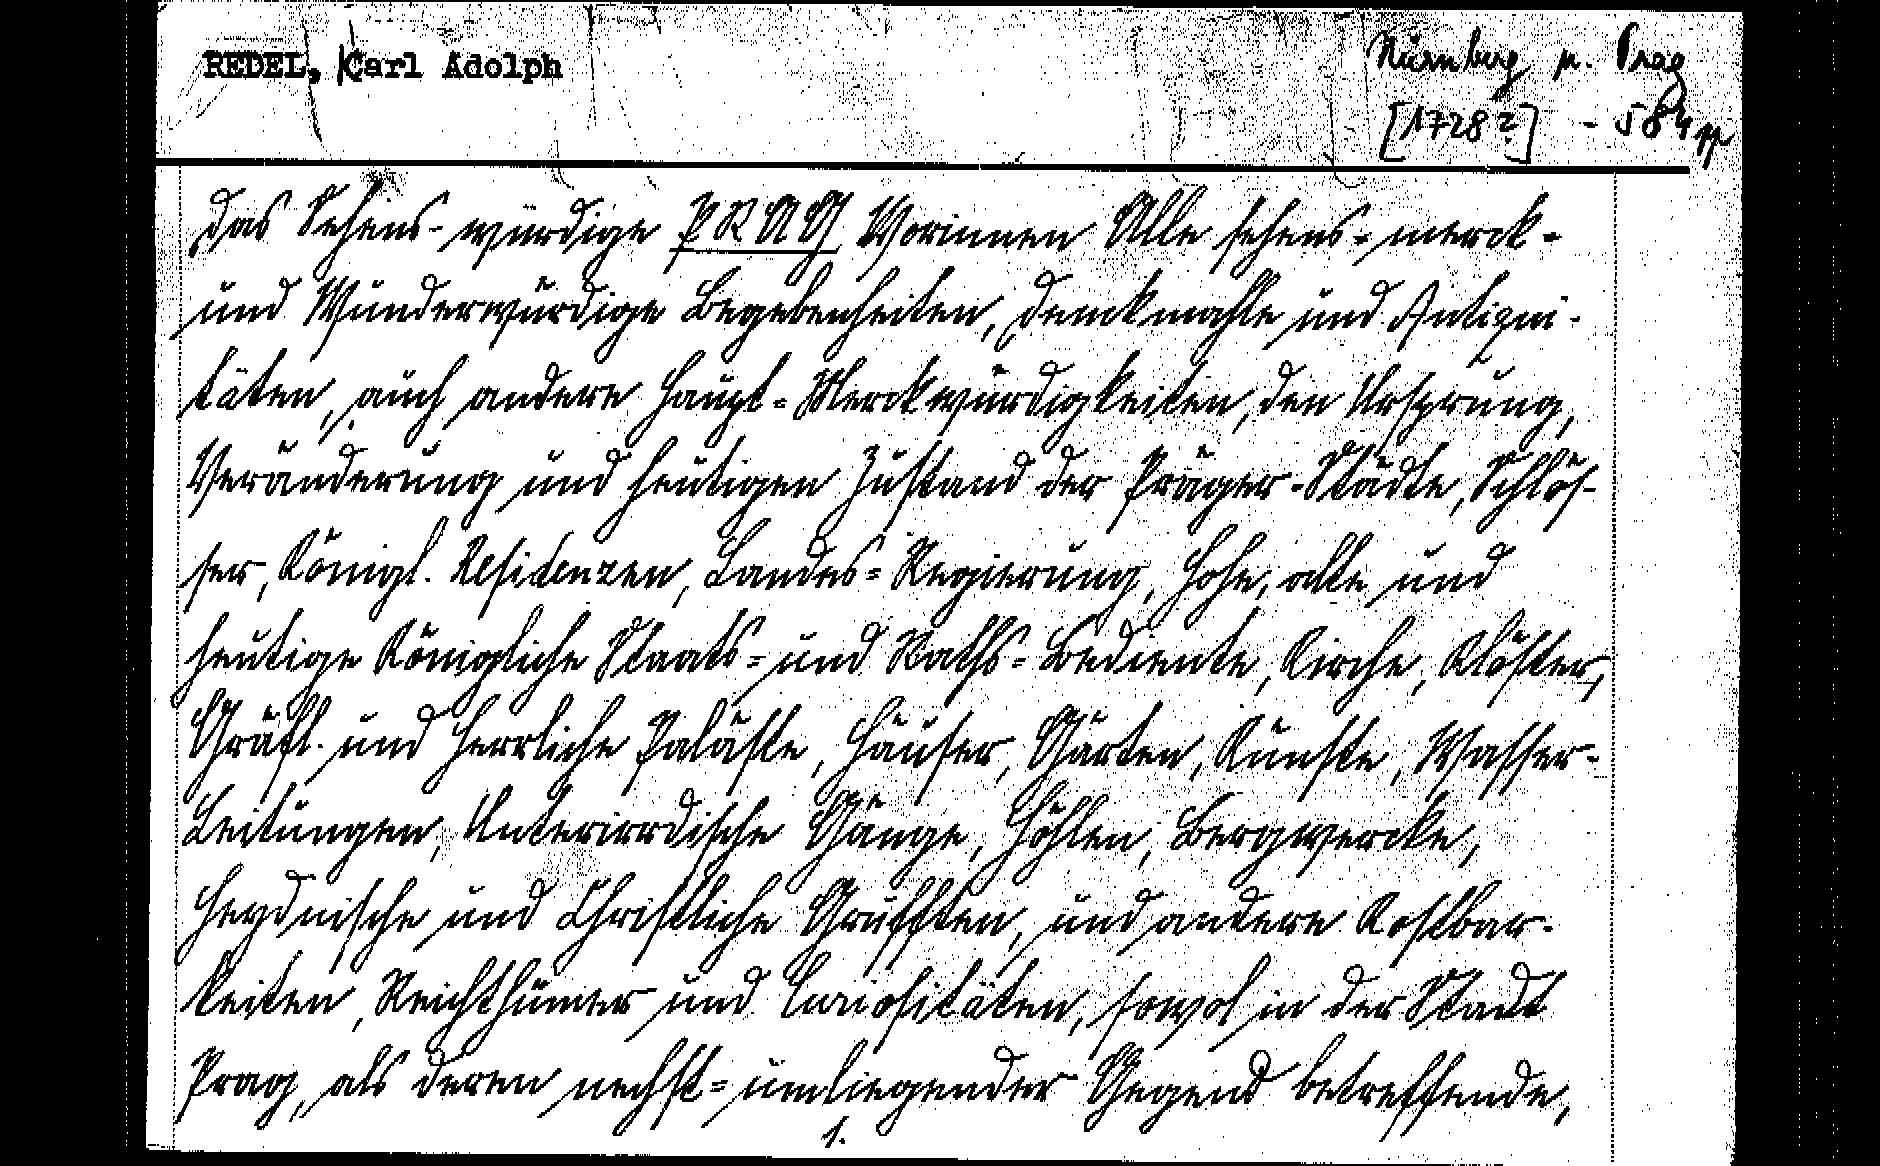 REDEL, Carl Adolph
Nürnberg u. Prag
[1728?] - 584 pp
Das Sehens-würdige PRAG Worinnen Alle sehens-merck-
und Wunderwürdige Begebenheiten, Denckmahle und Antiqui-
täten, auch andere Haupt-Merckwürdigkeiten, den Ursprung,
Veränderung und heutigen Zustand der Präger-Städte, Schlös-
ser, Königl. Residenzen, Landes-Regierung, Hohe, alte und
heutige Königliche Staats- und Raths-Bediente, Kirche, Klöster,
Gräfl. und Herrliche Paläste, Häuser, Gärten, Künste, Wasser-
Leitungen, Unterirrdische Gänge, Höhlen, Bergwercke,
Heydnische und Christliche Grufften, und andere Kostbar-
keiten, Reichthümer und Curiositäten, sowol in der Stadt
Prag, als deren nechst-umliegender Gegend betreffende,
1.